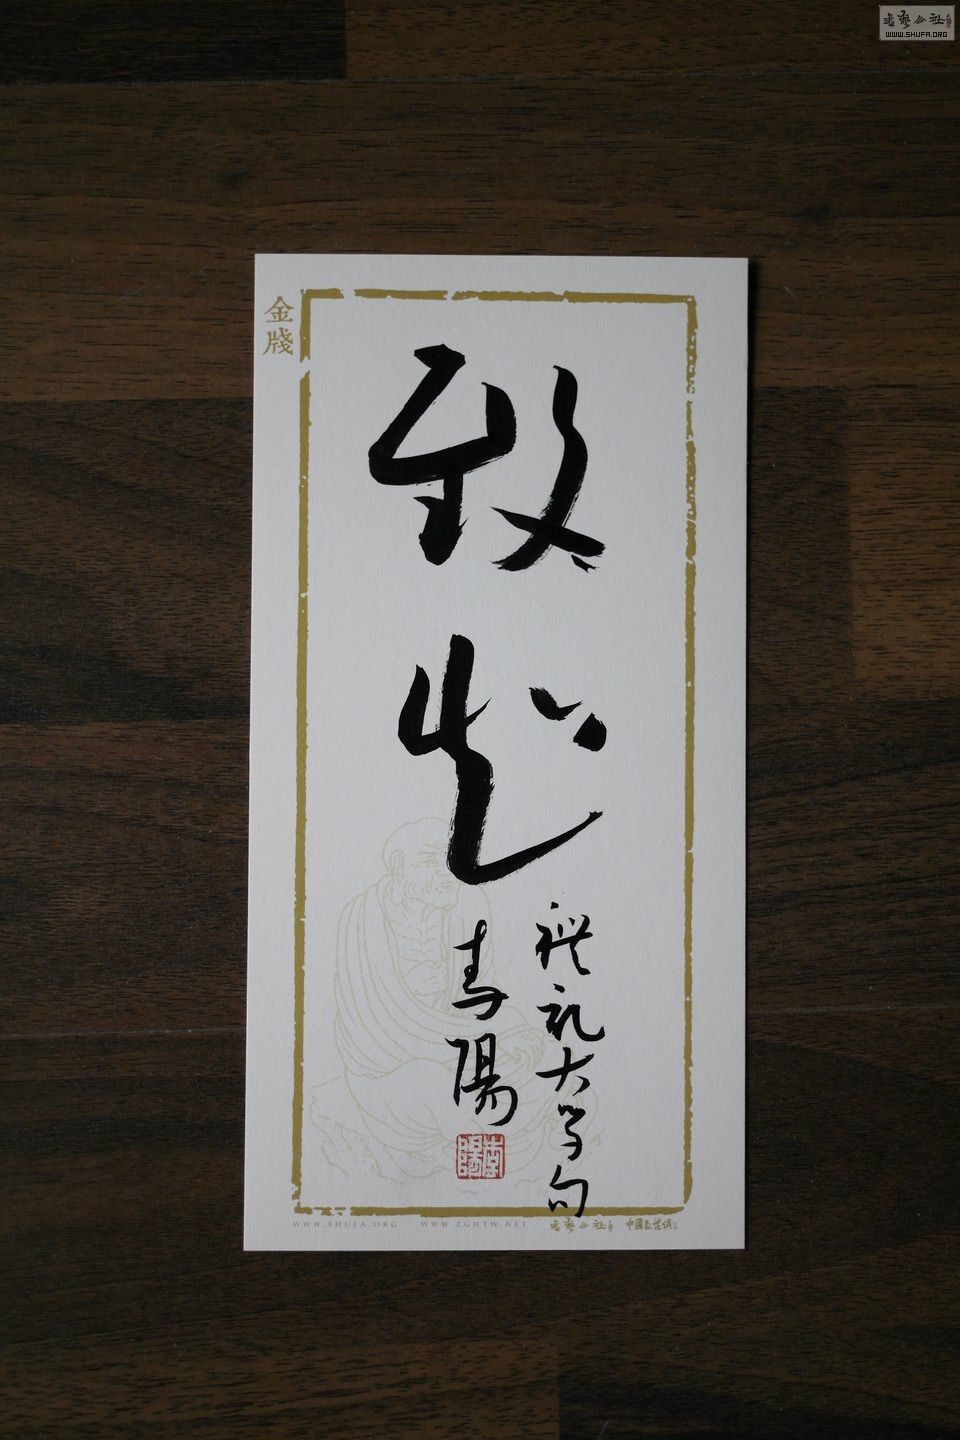 書藝公社
WWW.SHUFA.ORG
金牋
致知
禮記大学句
寿陽
WWW.SHUFA.ORG
WWW.ZGHTW.NET
書藝公社